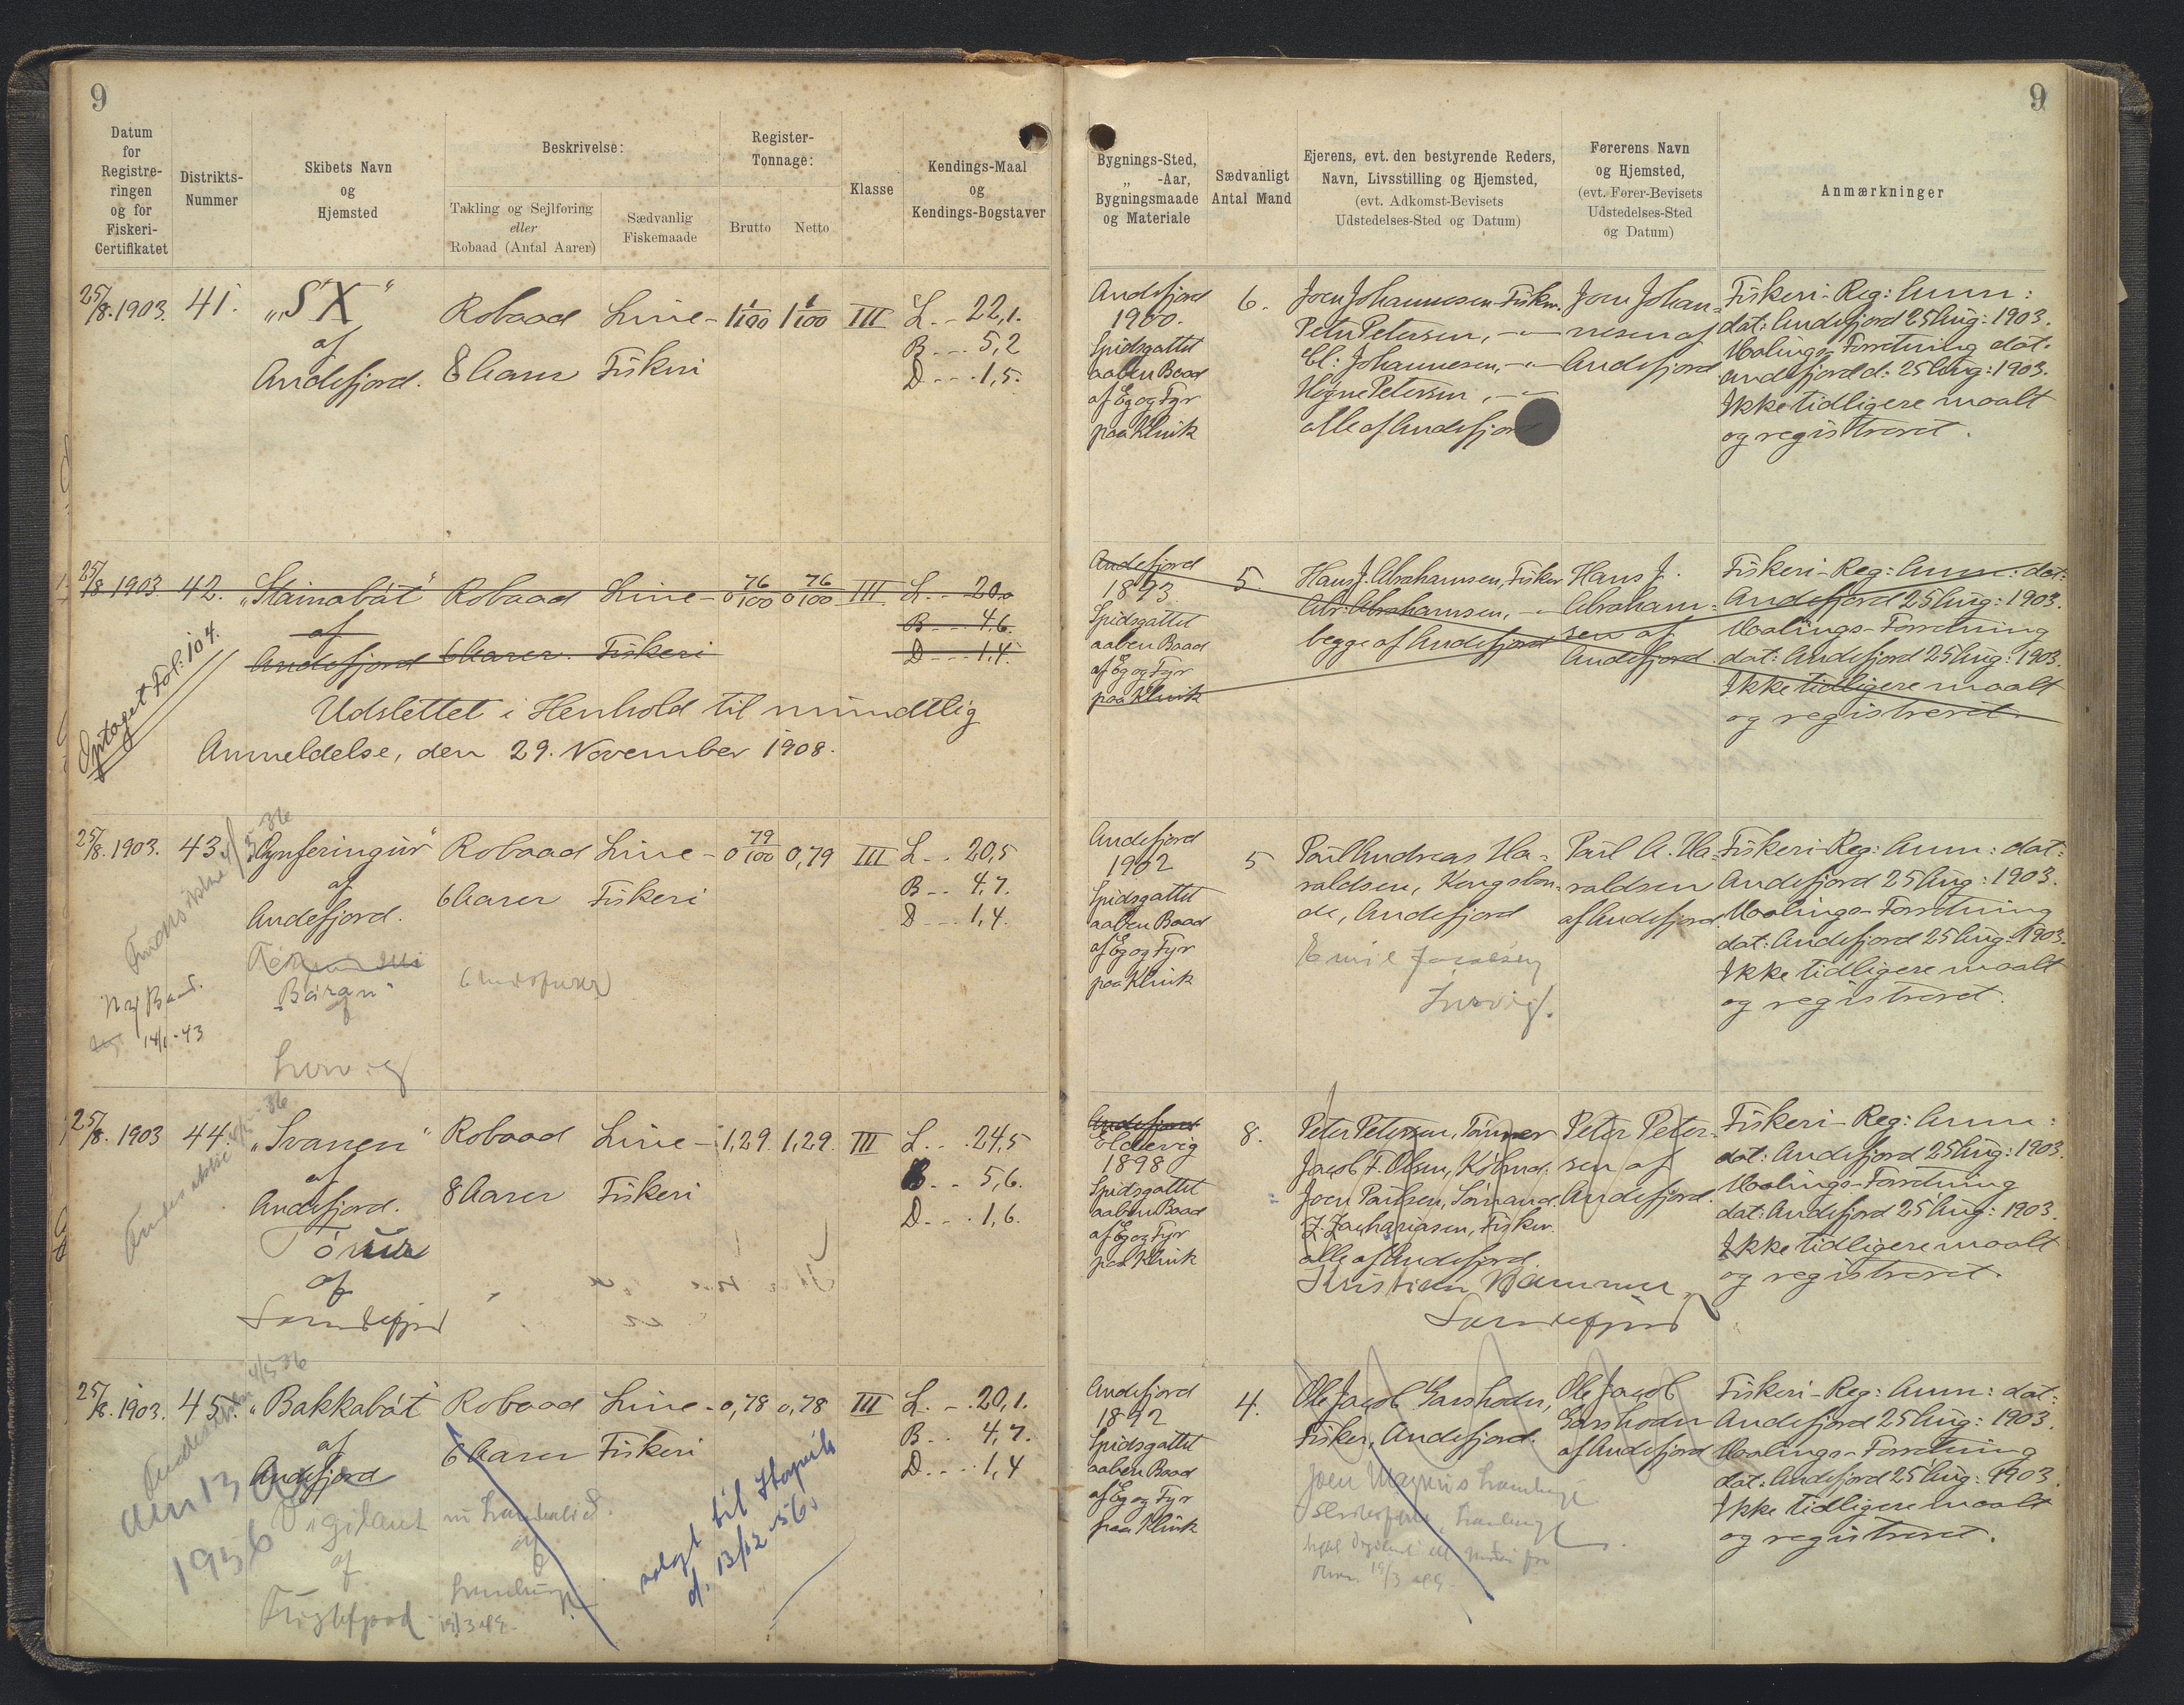 9
9
Datum
for
Registre-
ringen
og for
Fiskeri-
Certifikatet
Distrikts-
Nummer
Skibets Navn
og
Hjemsted
Beskrivelse:
Takling og Sejlføring
eller
Robaad (Antal Aarer)
Sædvanlig
Fiskemaade
Register-
Tonnage:
Brutto
Netto
Klasse
Kendings-Maal
og
Kendings-Bogstaver
Bygnings-Sted,
„ -Aar,
Bygningsmaade
og Materiale
Sædvanligt
Antal Mand
Ejerens, evt. den bestyrende Reders,
Navn, Livsstilling og Hjemsted,
(evt. Adkomst-Bevisets
Udstedelses-Sted og Datum)
Førerens Navn
og Hjemsted,
(evt. Fører-Bevisets
Udstedelses-Sted
og Datum)
Anmærkninger
25/8. 1903. 41. „SX“ Robaad Line- 1 1/100 1 1/100 III L. - 22,1.
af B - - - 5,2
Andefjord. 8 Aarer Fiskeri D - - - 1,5.
Andefjord
1900.
Spidsgattet
aaben Baad
af Eg og Fyr
paa Klink
6.
Joen Johannesen Fisker.
Peter Petersen, - " -
El: Johannesen, - " -
Høgne Petersen, - " -
alle af Andefjord
Joen Johan-
nesen af
Andefjord
Fiskeri-Reg: Anm:
dat: Andefjord 25 Aug: 1903.
Maalings-Forretning dat.
Andefjord d: 25 Aug: 1903.
Ikke tidligere maalt
og registreret.
25/8 1903 42. „Stainabát“ Robaad Line - 0 76/100 0 76/100 III L. - - 20,0
af B - - - 4,6.
Andefjord 6 Aarer. Fiskeri D - - - 1,4.
Optaget Fol: 104.
Udslettet i Henhold til mundtlig
Anmeldelse, den 29. November 1908.
Andefjord
1893.
Spidsgattet
aaben Baad
af Eg og Fyr
paa Klink
5
Hans J. Abrahamsen, Fisker
Abr: Abrahamsen, - " -
begge af Andefjord
Hans J.
Abraham-
sen af
Andefjord
Fiskeri-Reg: Anm: dat:
Andefjord 25 Aug: 1903.
Maalings-Forretning
dat: Andefjord 25 Aug: 1903.
Ikke tidligere maalt
og registreret.
25/8. 1903. 43 Robaad Line - 0 79/100 0,79 III L - . 20,5
af B - - 4,7.
Andefjord. 6 Aarer Fiskeri D - - - 1,4.
Ny Baad.
14/1-43
Andefjord
1902
Spidsgattet
aaben Baad
af Eg og Fyr
paa Klink
5
Paul Andreas Ha-
raldsen, Kongsbon-
de, Andefjord
Emil
Paul A. Ha-
raldsen
af Andefjord.
Fiskeri-Reg: Anm: dat:
Andefjord 25 Aug: 1903.
Maalings-Forretning
dat: Andefjord 25 Aug: 1903.
Ikke tidligere maalt
og registreret.
25/8. 1903 44. „Svanen“ Robaad Line - 1,29. 1,29. III L. . . 24,5
af B - . 5,6.
Andefjord. 8 Aarer Fiskeri D. . . . 1,6.
af
Andefjord
Eldevig
1898
Spidsgattet
aaben Baad
af Eg og Fyr
paa Klink
8.
Peter Petersen, Tømrer
Jacob F. Olsen, Købmd.
Joen Poulsen, Sømand.
Z. Zachariasen, Fisker.
alle af Andefjord.
Kristian
Peter Peter-
sen af
Andefjord.
Fiskeri-Reg: Anm:
dat: Andefjord 25 Aug: 1903.
Maalings-Forretning
dat: Andefjord 25 Aug: 1903.
Ikke tidligere maalt
og registreret.
25/8. 1903. 45. „Bakkabát“ Robaad Line - 0,78 0,78 III L. - . 20,1.
af B - . 4,7.
Andefjord 6 Aarer Fiskeri D. . . . 1,4
1936
Vigilant
af
solgt til
d. 13/12-56.
Andefjord
1892
Spidsgattet
aaben Baad
af Eg og Fyr
paa Klink
4.
Ole Jacob
Fisker, Andefjord.
Joen Magnus
Ole Jacob
af Andefjord
Fiskeri-Reg: Anm: dat:
Andefjord 25 Aug: 1903.
Maalings-Forretning
dat: Andefjord 25 Aug: 1903.
Ikke tidligere maalt
og registreret.